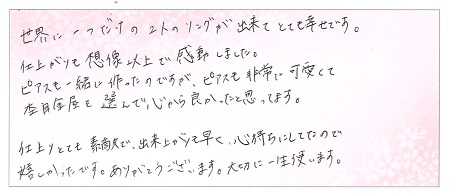 世界に一つだけの2人のリングが出来てとても幸せです。
仕上がりも想像以上で感動しました。
ピアスも一緒に作ったのですが、ピアスも非常に可愛くて
杢目金屋を選んで心から良かったと思ってます。
仕上りとても素敵で、出来上がりも早く、心待ちにしてたので
嬉しかったです。ありがとうございます。大切に一生使います。